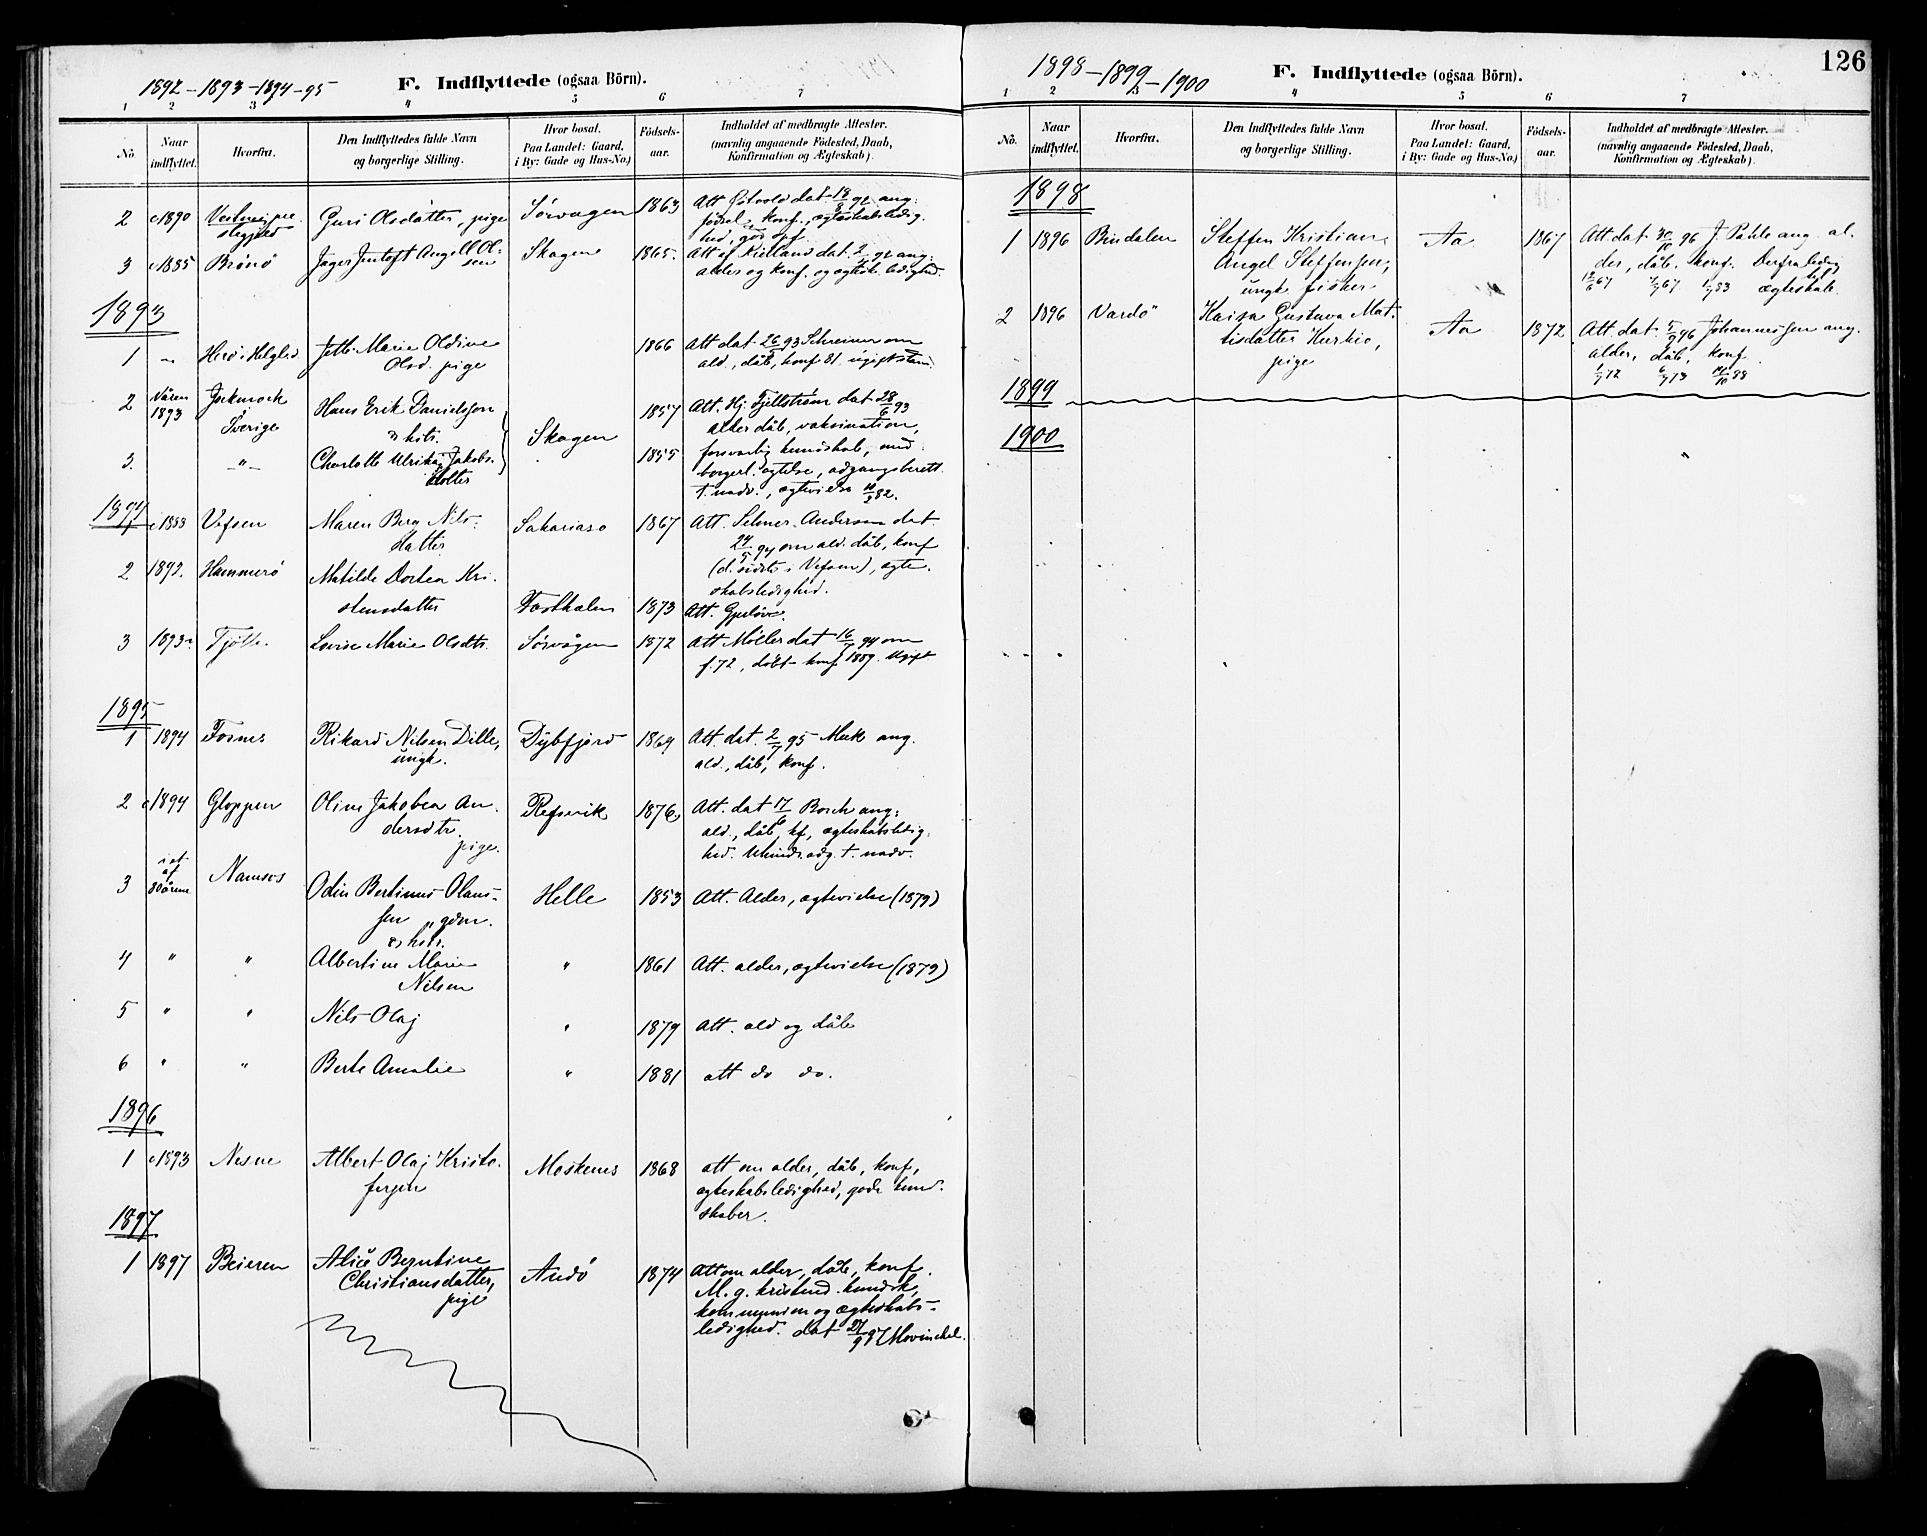 1892-1893-1894-95
F. Indflyttede (ogsaa Börn).
1 2 3 4 5 6 7
No.
Naar indflyttet.
Hvorfra.
Den Indflyttedes fulde Navn
og borgerlige Stilling.
Hvor bosat.
Paa Landet: Gaard,
i By: Gade og Hus-No.)
Födsels-
aar.
Indholdet af medbragte Attester.
(navnlig angaaende Födested, Daab,
Konfirmation og Ægteskab).
2 c1890 Guri Olsdatter, pige Sørvagen 1863 Att Østvold dat 18/8 92 ang.
fødsel, konf., ægteskabsledig-
hed, god opf.
3 c1885 Brønø Jager Jentoft Angell Ol-
sen Skagen 1865. Att af Kielland dat. 92 ang.
alder og konf. og ægtesk. ledighed.
1893
1 " Herø i Helgld. Jette Marie Oldine
Olsd. pige 1866 Att dat 26 93 Schreiner om
ald., dåb, konf 81 ugift stan.
2 Våren
1893 Jockmock
Sverige Hans Erik Danielsson
& hstr. Skagen 1857 Att. Hj. Fjellström dat 28/6 93
alder dåb, vaksination,
3. -"- Charlotte Ulrika Jakobs-
dotter 1855 forsvarlig kundskab, med
borgerl. agtelse, adgangsberett.
t. nadv., ægtevielse 82.
1894
c1883 Vefsen Maren Berg Nils-
datter Sakariasø 1867 Att. Selmer-Andersen dat
24/5 94 om ald. dåb, konf
(d. sidste i Vefsen), ægte-
skabsledighed.
2 1892. Hammerø Matilde Dortea Kri-
stensdatter 1873 Att. Gjeløw.
3 1893 Tjøtta. Lovise Marie Olsdtr. Sørvågen 1872 Att Møller dat 16 94 om
f. 72, dåbt konf 1889. Ugift
1895
1 1894 Fosnes Rikard Nilsen Dille,
ungk. Dybfjord 1869 Att. dat. 2/7 95 Mek ang.
ald., dåb, konf.
2 c1894 Gloppen Oline Jakobea An-
dersdtr.
pige. Refsvik 1876 Att. dat 17/6 Bosch ang:
ald., dåb, kf, ægteskabsledig-
hed. Uhindr. adg. t. nadv.
3 80årene Namsos Odin Bertinus Olaus-
sen, gdm.
& hstr. Helle 1853 Att. Alder, ægtevielse (1879)
4 " " Albertine Marie
Nilsen " 1861 Att. alder, ægtevielse (1879)
5 " " Nils Olaj " 1879 Att. ald og dåb
6 " " Berte Amalie " 1881 att do do.
1896
1 c1893 Nesne Albert Olaj Kristo-
fersen Moskenes 1868 att om alder, dåb, konf,
ægteskabsledighed, gode kund-
skaber.
1897
1 1897 Beieren Alice Berntine
Christiansdatter,
pige Andø 1874 Att om alder, dåb, konf.
M. g. kristend. kundsk,
kommunion og ægteskabs-
ledighed. dat 27/9 97 Movinckel.
1898-1899-1900
F. Indflyttede (ogsaa Börn).
126
1 2 3 4 5 6 7
No.
Naar
indflyttet.
Hvorfra.
Den Indflyttedes fulde Navn
og borgerlige Stilling.
Hvor bosat.
Paa Landet: Gaard,
i By: Gade og Hus-No.)
Födsels-
aar.
Indholdet af medbragte Attester.
(navnlig angaaende Födested, Daab,
Konfirmation og Ægteskab).
1898
1 1896 Bindalen Steffen Kristian
Angel Steffensen,
ungk fisker Aa 1867 Att. dat 30/10 96 J. Pahle ang. al-
der, dåb. konf. Derfra ledig
12/6 67 7/7 67 1/7 83 ægteskab.
2 1896 Vardö Kaisa Gustava Mat-
tisdatter Kurkio,
pige Aa 1872 Att dat 5/9 96 Johannessen ang.
alder, dåb, konf.
1/7 72 6/7 73 14/10 88
1899
1900